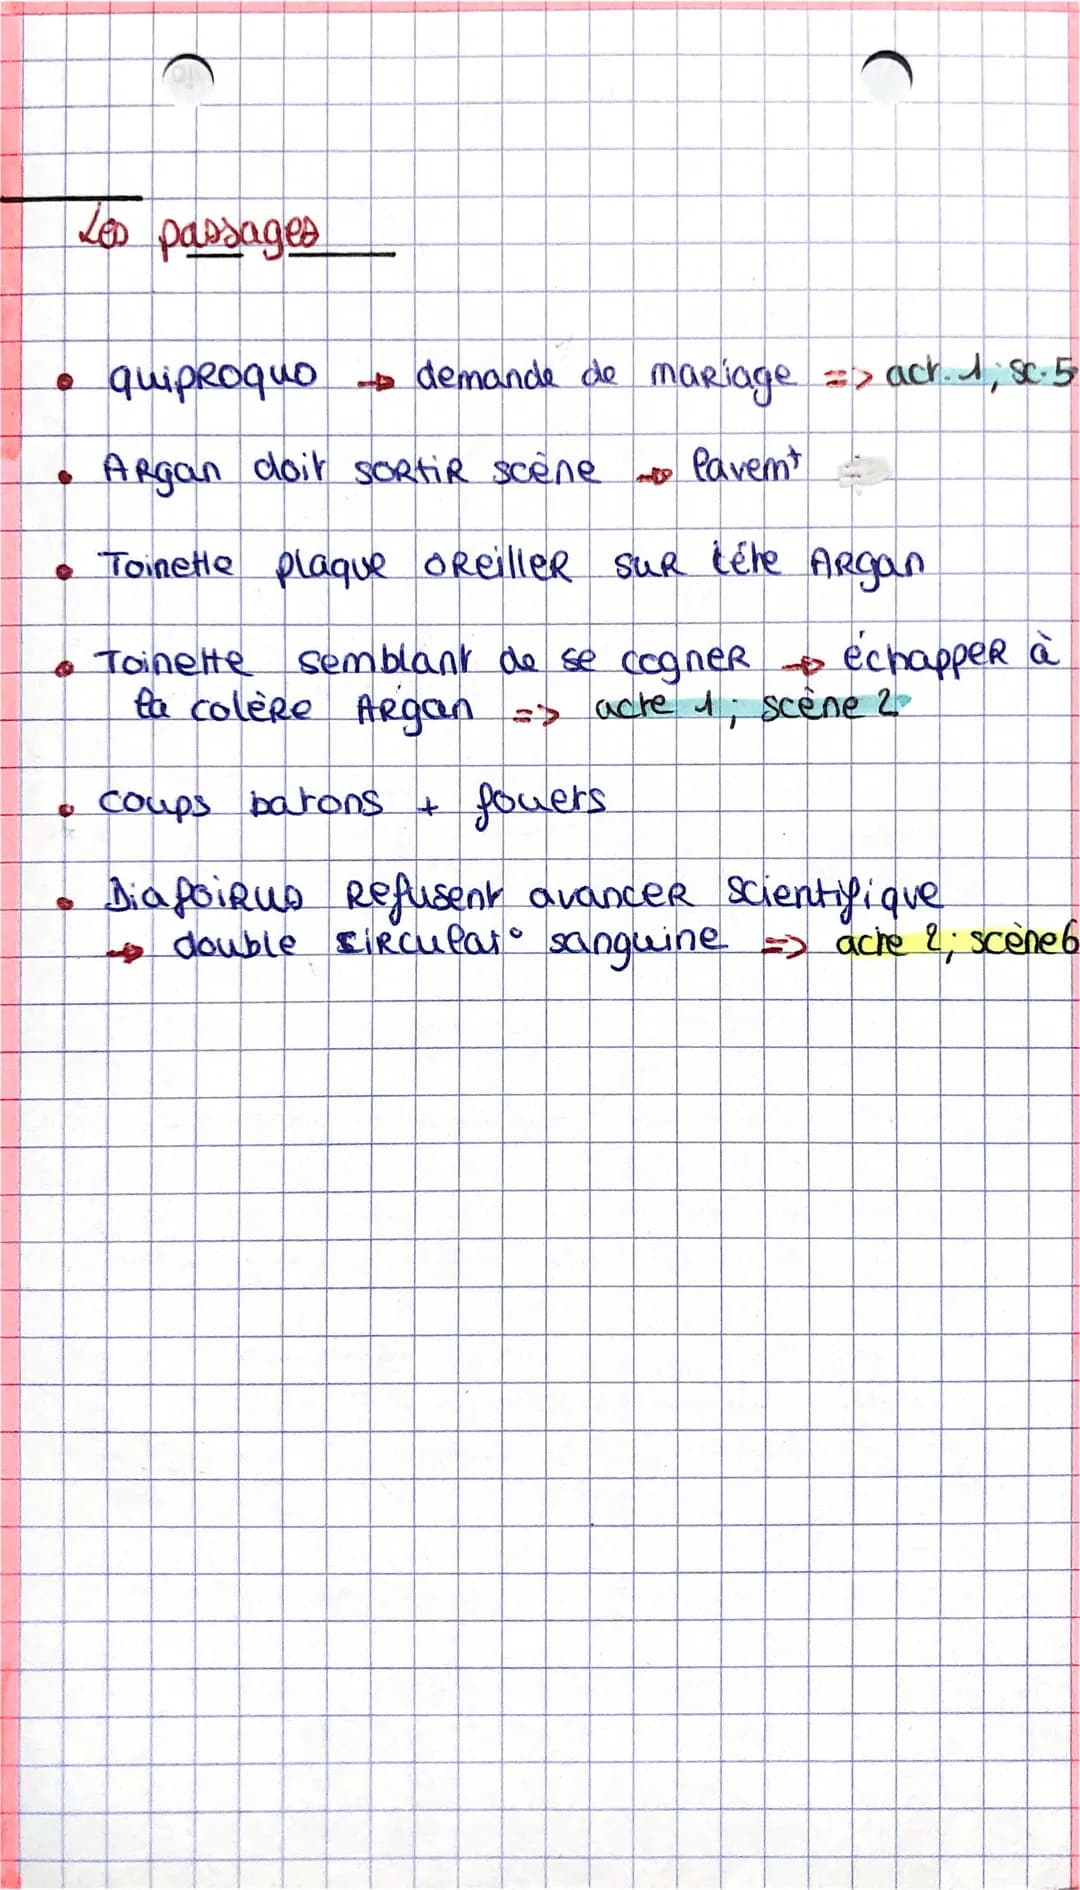 Les passages
• quiproquo → demande de mariage => act. 1; sc. 5
• Argan doit sortir scène → lavemt
• Toinette plaque oreiller sur tête Argan
• Toinette semblant de se cogner → échapper à
la colère Argan => acte 1; scène 2
• coups batons + fouets
• Diafoirus refusent avancer scientifique
→ double circulat° sanguine => acte 2; scène 6